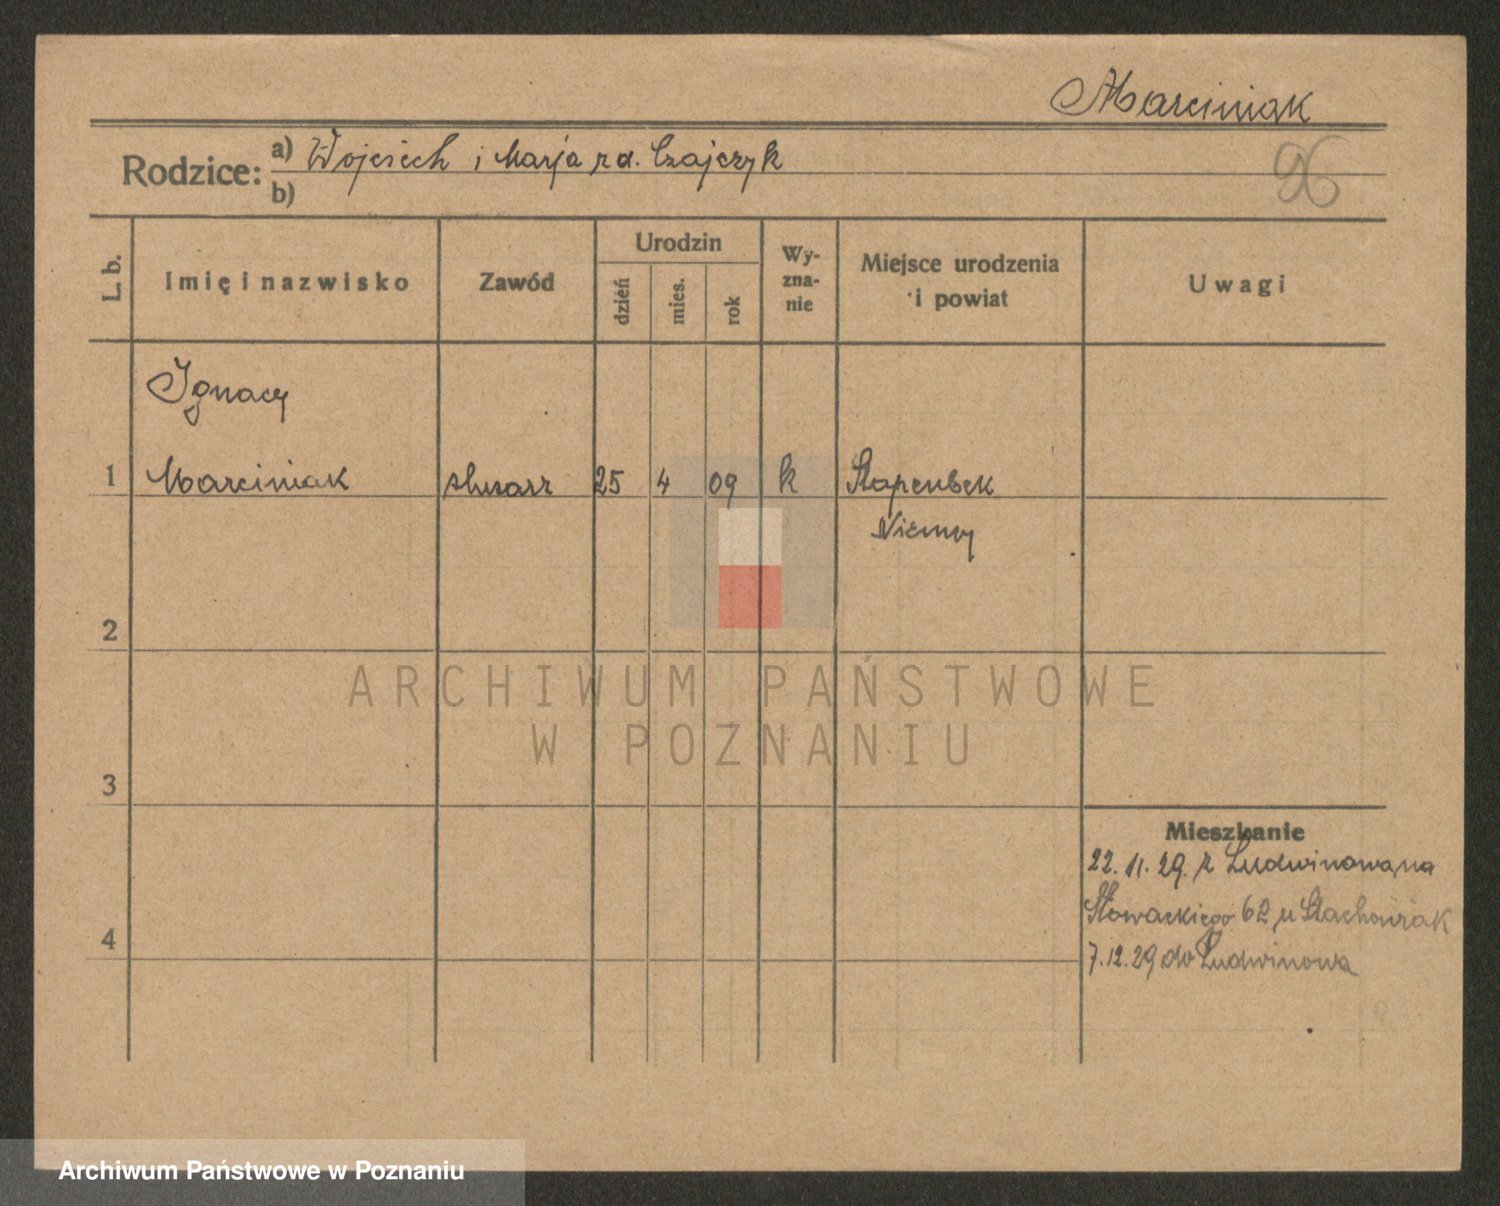 Marciniak
96
Rodzice: a) Wojciech i Marja zd. Czajczyk
b)
L. b.
Imię i nazwisko
Zawód
Urodzin
dzień
mies.
rok
Wy-
zna-
nie
Miejsce urodzenia
i powiat
Uwagi
Ignacy
1 Marciniak ślusarz 25 4 09 k Stapenbek
Niemcy
2
ARCHIWUM PAŃSTWOWE
W POZNANIU
3
Mieszkanie
22.11.29. z Ludwinowa na
Słowackiego 62 u Stachowiak
4
7.12.29 do Ludwinowa
Archiwum Państwowe w Poznaniu